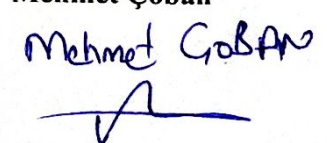 Mehmet Çoban
Mehmet ÇOBAN